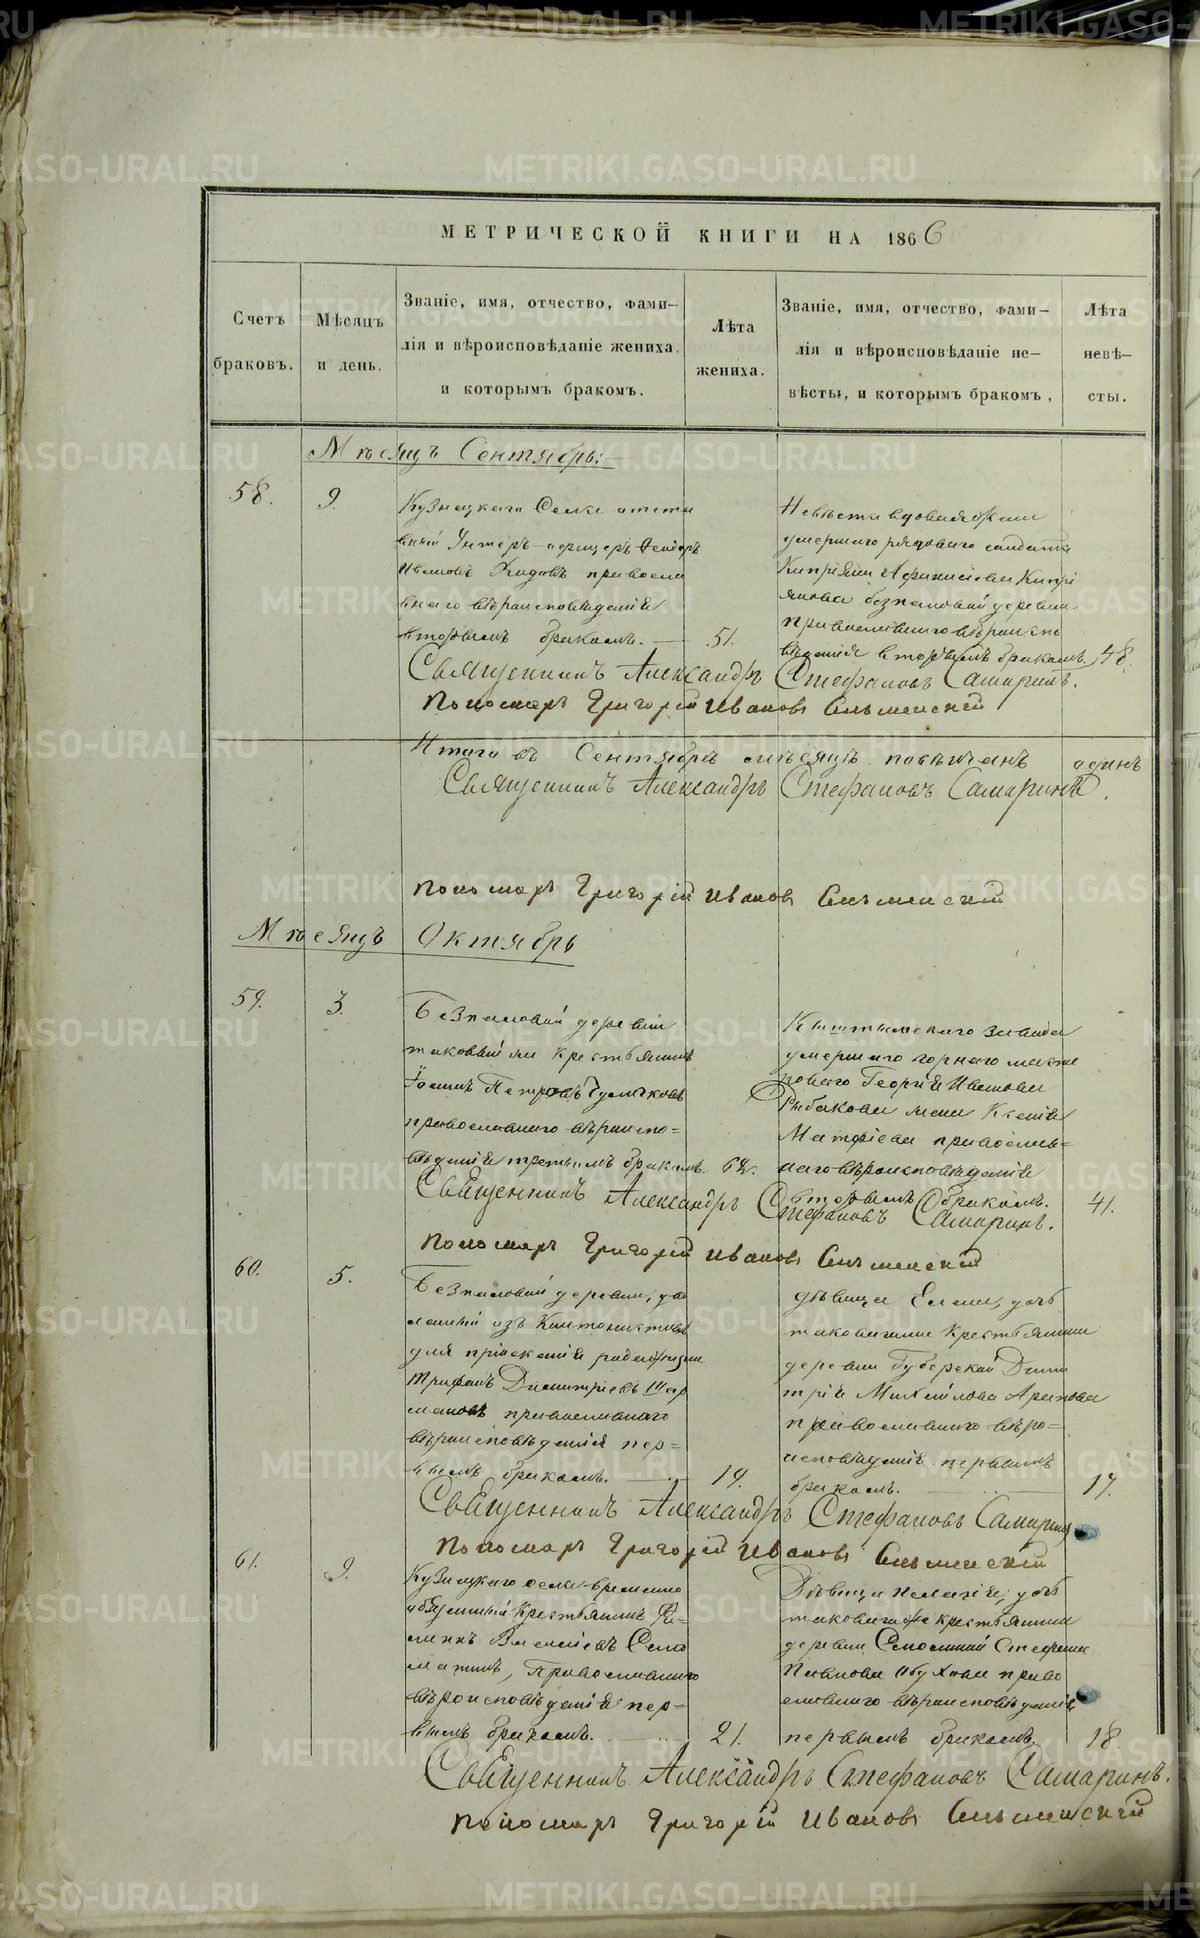 МЕТРИЧЕСКОЙ КНИГИ НА 1866
Счетъ браковъ.
Мѣсяцъ и день.
Званіе, имя, отчество, фами-
лія и вѣроисповѣданіе жениха.
и которымъ бракомъ.
Лѣта
жениха.
Званіе, имя, отчество, фами-
лія и вѣроисповѣданіе не-
вѣсты, и которымъ бракомъ,
Лѣта
невѣ-
сты.
Мѣсяцъ Сентябрь:
58.
9.
Кузнецкаго Села
Унтеръ-офицеръ Феодоръ
Ивановъ православ
наго вѣроисповѣданія
вторымъ бракомъ.
51.
Невѣста вдова
умершаго рядоваго солдата
Кипріяна Кипрі
янова безпаловой деревни
православнаго вѣроиспо
вѣданія вторымъ бракомъ.
48.
Священникъ Александръ Стефановъ Самаринъ.
Пономарь Григорій Ивановъ
Итого въ Сентябрѣ мѣсяцѣ повѣнчанъ одинъ
Священникъ Александръ Стефановъ Самаринъ.
Пономарь Григорій Ивановъ
Мѣсяцъ Октябрь
59.
3.
Безпаловой деревни
крестьянинъ
Петровъ
православнаго вѣроиспо=
вѣданія третьимъ бракомъ.
62.
Кыштымскаго завода
умершаго горнаго масте
роваго Георгія Иванова
Рыбакова жена Ксенія
Матфіева православ=
наго вѣроисповѣданія
вторымъ бракомъ.
41.
Священникъ Александръ Стефановъ Самаринъ.
Пономарь Григорій Ивановъ
60.
5.
Безпаловой деревни, уво
ленный изъ Кантонистовъ
для пріисканія
Трифонъ Димитріевъ
православнаго
вѣроисповѣданія пер=
вымъ бракомъ.
19.
дѣвица Елена, дочь
таковагоже Крестьянина
деревни Губерской Дими
трія Михайлова
православнаго вѣро=
исповѣданія первымъ
бракомъ.
17.
Священникъ Александръ Стефановъ Самаринъ
Пономарь Григорій Ивановъ
61.
9.
Кузнецкаго села временно
обязанный Крестьянинъ Фи=
липпъ Василіевъ
Православнаго
вѣроисповѣданія пер=
вымъ бракомъ.
21.
Дѣвица Пелагія, дочь
таковагоже крестьянина
деревни Стефана
Павлова право
славнаго вѣроисповѣданія
первымъ бракомъ.
18.
Священникъ Александръ Стефановъ Самаринъ.
Пономарь Григорій Ивановъ
METRIKI.GASO-URAL.RU